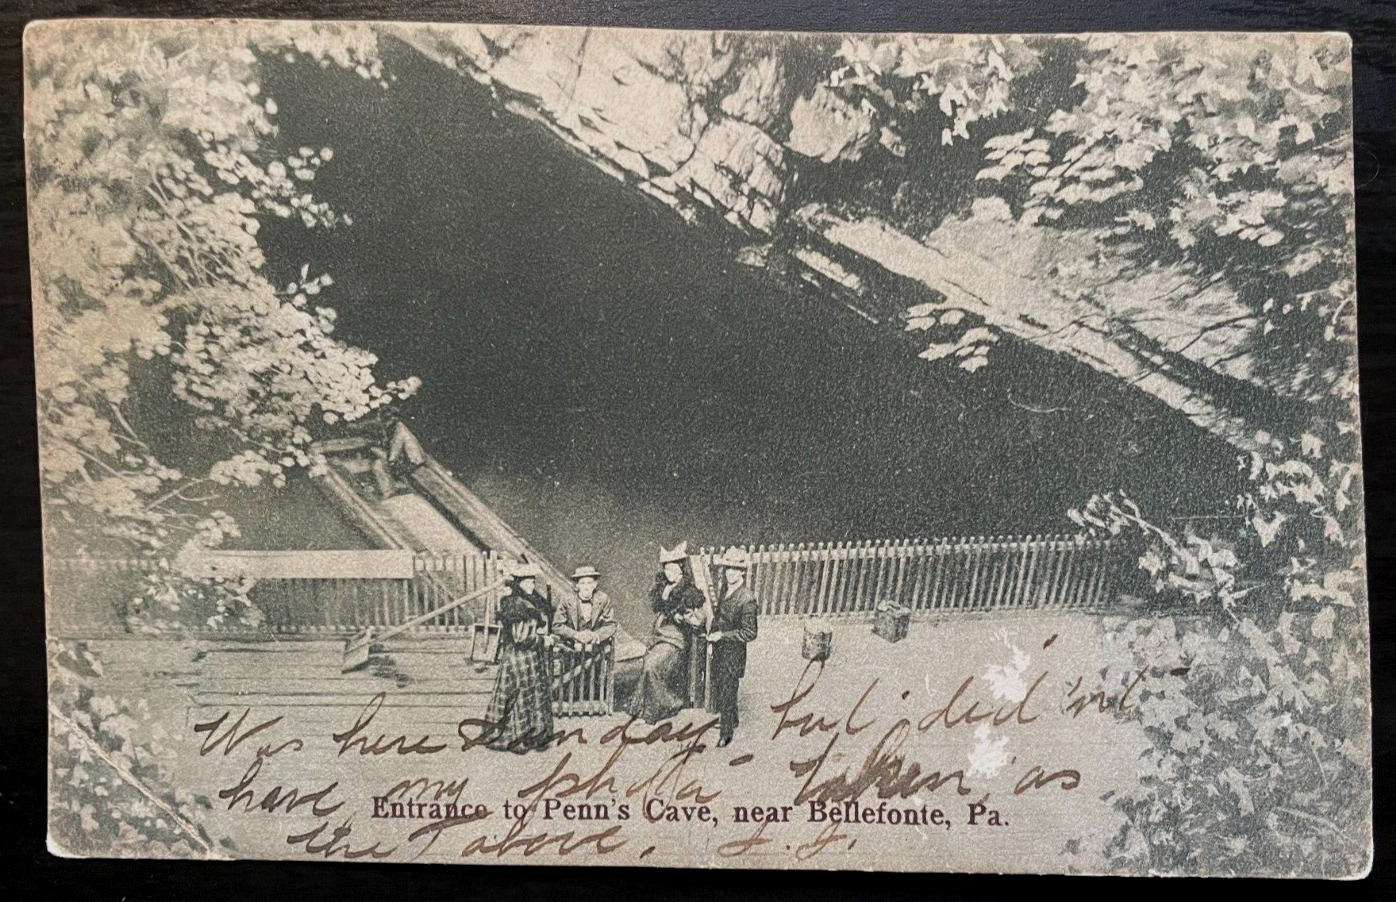 Was here Sunday but did'nt
have my photo taken, as
Entrance to Penn's Cave, near Bellefonte, Pa.
the above.